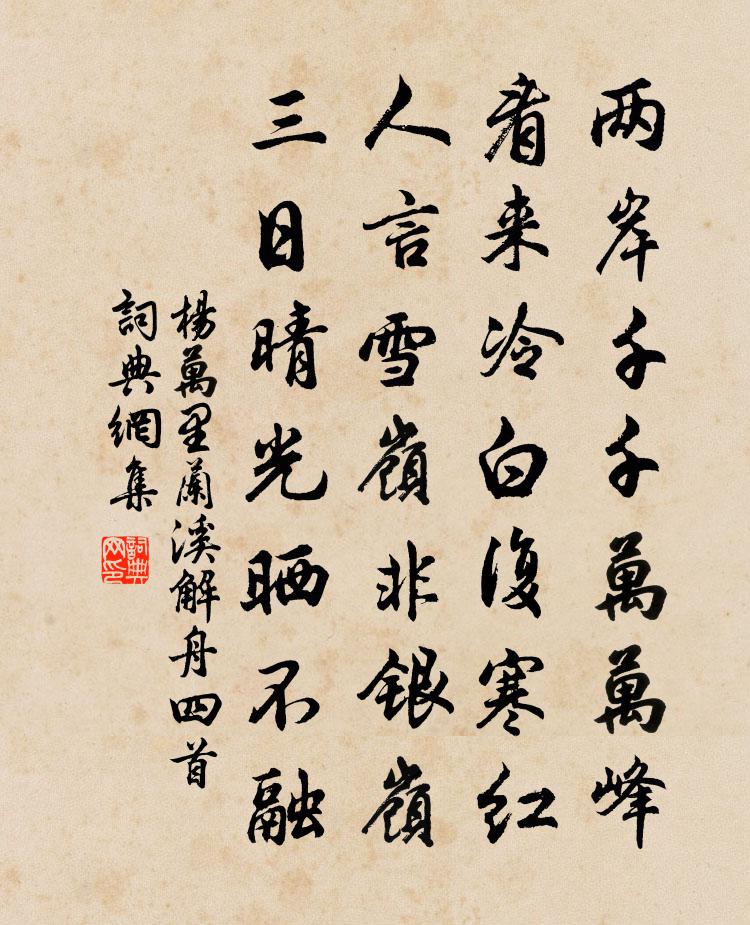 两岸千千萬萬峰
看来冷白復寒红
人言雪嶺非銀嶺
三日晴光晒不融
楊萬里蘭溪解舟四首
詞典網集
詞典网印